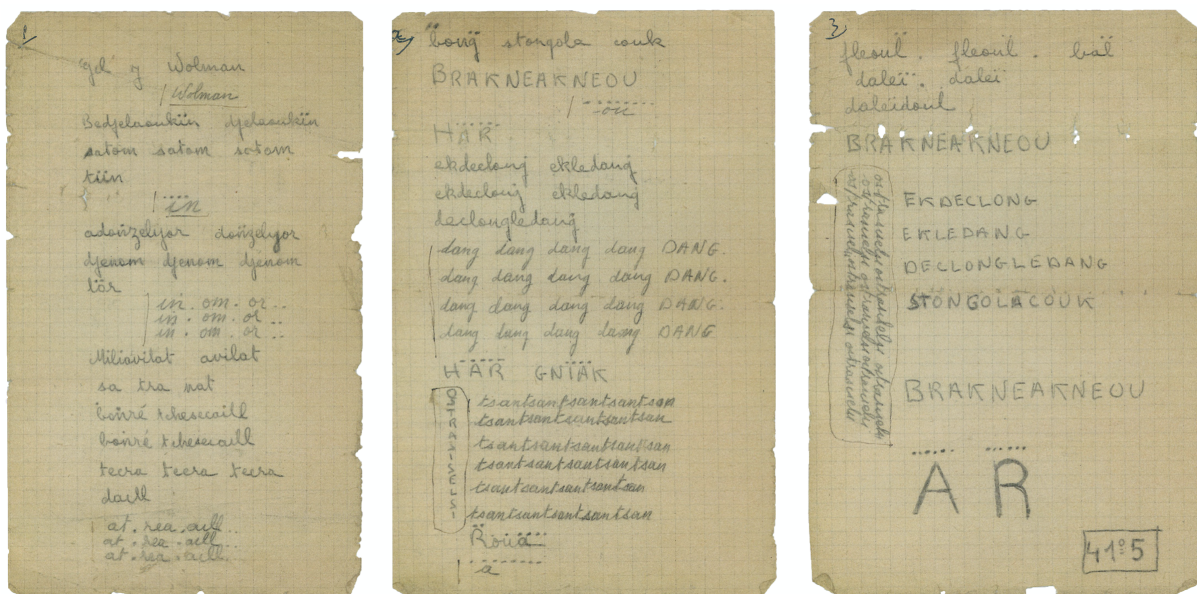 1
gd' J Wolman
Wolman
Bedjelaoukïn djelaoukïn
satom satom satom
tïïn
ïn
adoïzelyor doïzelyor
djenom djenom djenom
lör
in. om. or...
in. om. or...
in. om. or...
Miliavitat avilat
sa tra nat
bonré tchesecaill
bonré tchesecaill
tecra tecra tecra
daïll
at. rea. aill...
at. rea. aill...
at. rea. aill...
2
bong stongola couk
BRAKNEAKNEOU
ou
HÄR
ekdeclong ekledang
ekdeclong ekledang
declongledang
dang dang dang dang DANG.
dang dang dang dang DANG.
dang dang dang dang DANG.
dang dang dang dang DANG
HÄR GNÏÄK
tsantsantsantsantsan
tsantsantsantsantsan
tsantsantsantsantsan
tsantsantsantsantsan
tsantsantsantsantsan
tsantsantsantsantsan
Roua
a
3
fleouïl. fleouïl. baï
daleï. daleï
daleïdouïl
BRAKNEAKNEOU
EKDECLONG
EKLEDANG
DECLONGLEDANG
STONGOLACOUK
BRAKNEAKNEOU
AR
41°5